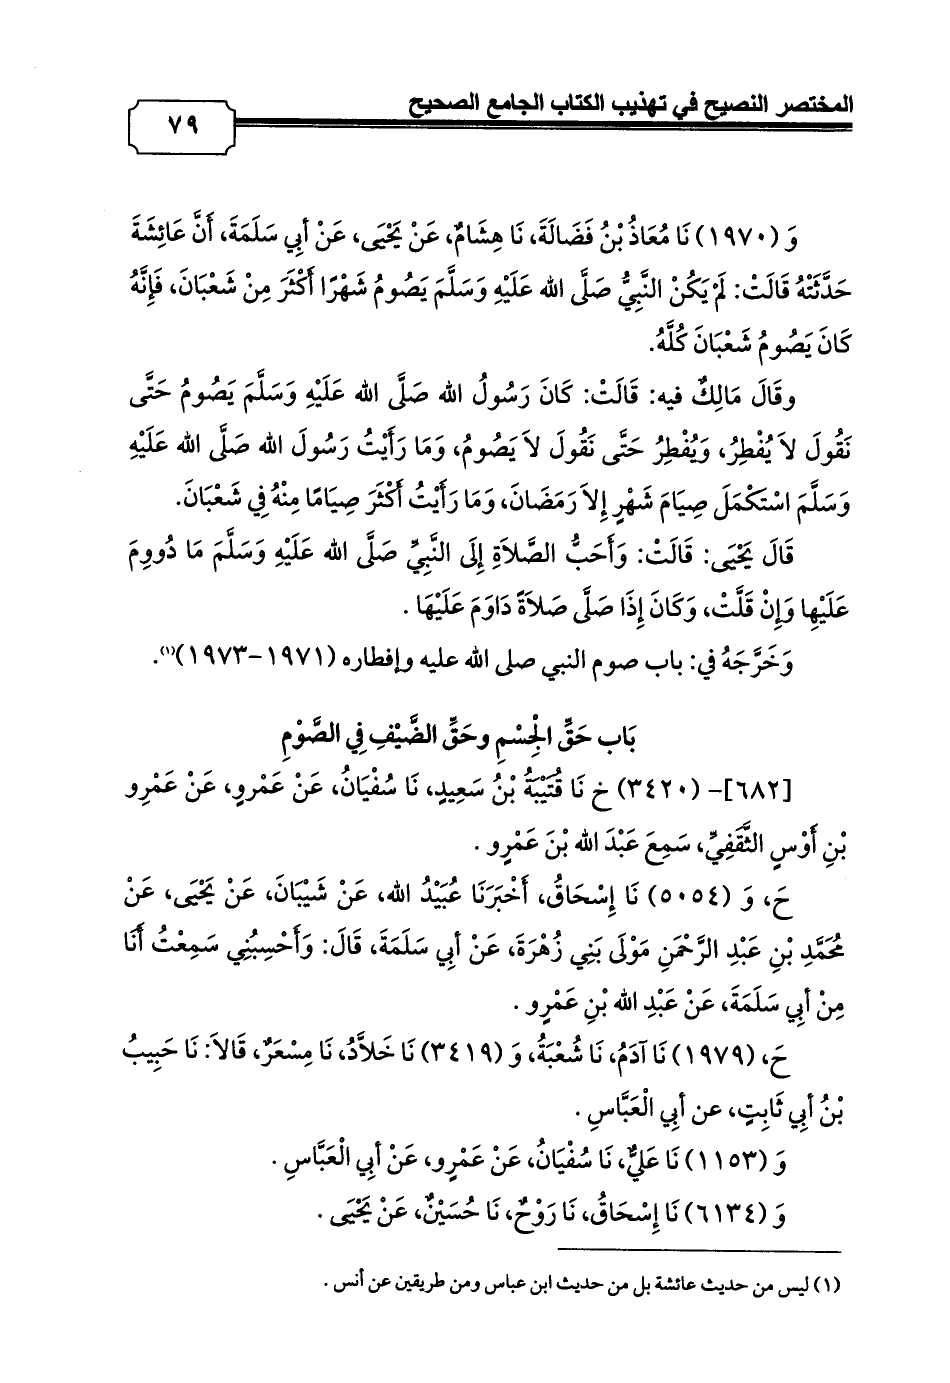 المختصر النصيح في تهذيب الكتاب الجامع الصحيح
٧٩
وَ (١٩٧٠) نَا مُعَاذُ بْنُ فَضَالَةَ، نَا هِشَامٌ، عَنْ يَحْيَى، عَنْ أَبِي سَلَمَةَ، أَنَّ عَائِشَةَ
حَدَّثَتْهُ قَالَتْ: لَمْ يَكُنْ النَّبِيُّ صَلَّى الله عَلَيْهِ وَسَلَّمَ يَصُومُ شَهْرًا أَكْثَرَ مِنْ شَعْبَانَ، فَإِنَّهُ
كَانَ يَصُومُ شَعْبَانَ كُلَّهُ.
وقَالَ مَالِكٌ فيه: قَالَتْ: كَانَ رَسُولُ الله صَلَّى الله عَلَيْهِ وَسَلَّمَ يَصُومُ حَتَّى
نَقُولَ لاَ يُفْطِرُ، وَيُفْطِرُ حَتَّى نَقُولَ لاَ يَصُومُ، وَمَا رَأَيْتُ رَسُولَ الله صَلَّى الله عَلَيْهِ
وَسَلَّمَ اسْتَكْمَلَ صِيَامَ شَهْرٍ إِلاَ رَمَضَانَ، وَمَا رَأَيْتُ أَكْثَرَ صِيَامًا مِنْهُ فِي شَعْبَانَ.
قَالَ يَحْيَى: قَالَتْ: وَأَحَبُّ الصَّلاَةِ إِلَى النَّبِيِّ صَلَّى الله عَلَيْهِ وَسَلَّمَ مَا دُووِمَ
عَلَيْهِا وَإِنْ قَلَّتْ، وَكَانَ إِذَا صَلَّى صَلاَةً دَاوَمَ عَلَيْهَا .
وَخَرَّجَهُ في: باب صوم النبي صلى الله عليه وإفطاره (١٩٧١-١٩٧٣)(١).
بَاب حَقِّ الْجِسْمِ وحَقِّ الضَّيْفِ فِي الصَّوْمِ
[٦٨٢]- (٣٤٢٠) خ نَا قُتَيْبَةُ بْنُ سَعِيدٍ، نَا سُفْيَانُ، عَنْ عَمْرٍو، عَنْ عَمْرِو
بْنِ أَوْسٍ الثَّقَفِيِّ، سَمِعَ عَبْدَ الله بْنَ عَمْرٍو .
حَ، وَ (٥٠٥٤) نَا إِسْحَاقُ، أَخْبَرَنَا عُبَيْدُ الله، عَنْ شَيْبَانَ، عَنْ يَحْيَى، عَنْ
مُحَمَّدِ بْنِ عَبْدِ الرَّحْمَنِ مَوْلَى بَنِي زُهْرَةَ، عَنْ أَبِي سَلَمَةَ، قَالَ: وَأَحْسِبُنِي سَمِعْتُ أَنَا
مِنْ أَبِي سَلَمَةَ، عَنْ عَبْدِ الله بْنِ عَمْرٍو .
حَ، (١٩٧٩) نَا آدَمُ، نَا شُعْبَةُ، وَ (٣٤١٩) نَا خَلاَّدُ، نَا مِسْعَرٌ، قَالاَ: نَا حَبِيبُ
بْنُ أَبِي ثَابِتٍ، عن أَبِي الْعَبَّاسِ .
وَ (١١٥٣) نَا عَلِيٌّ، نَا سُفْيَانُ، عَنْ عَمْرٍو، عَنْ أَبِي الْعَبَّاسِ .
وَ (٦١٣٤) نَا إِسْحَاقُ، نَا رَوْحٌ، نَا حُسَيْنٌ، عَنْ يَحْيَى .
(١) ليس من حديث عائشة بل من حديث ابن عباس ومن طريقين عن أنس .